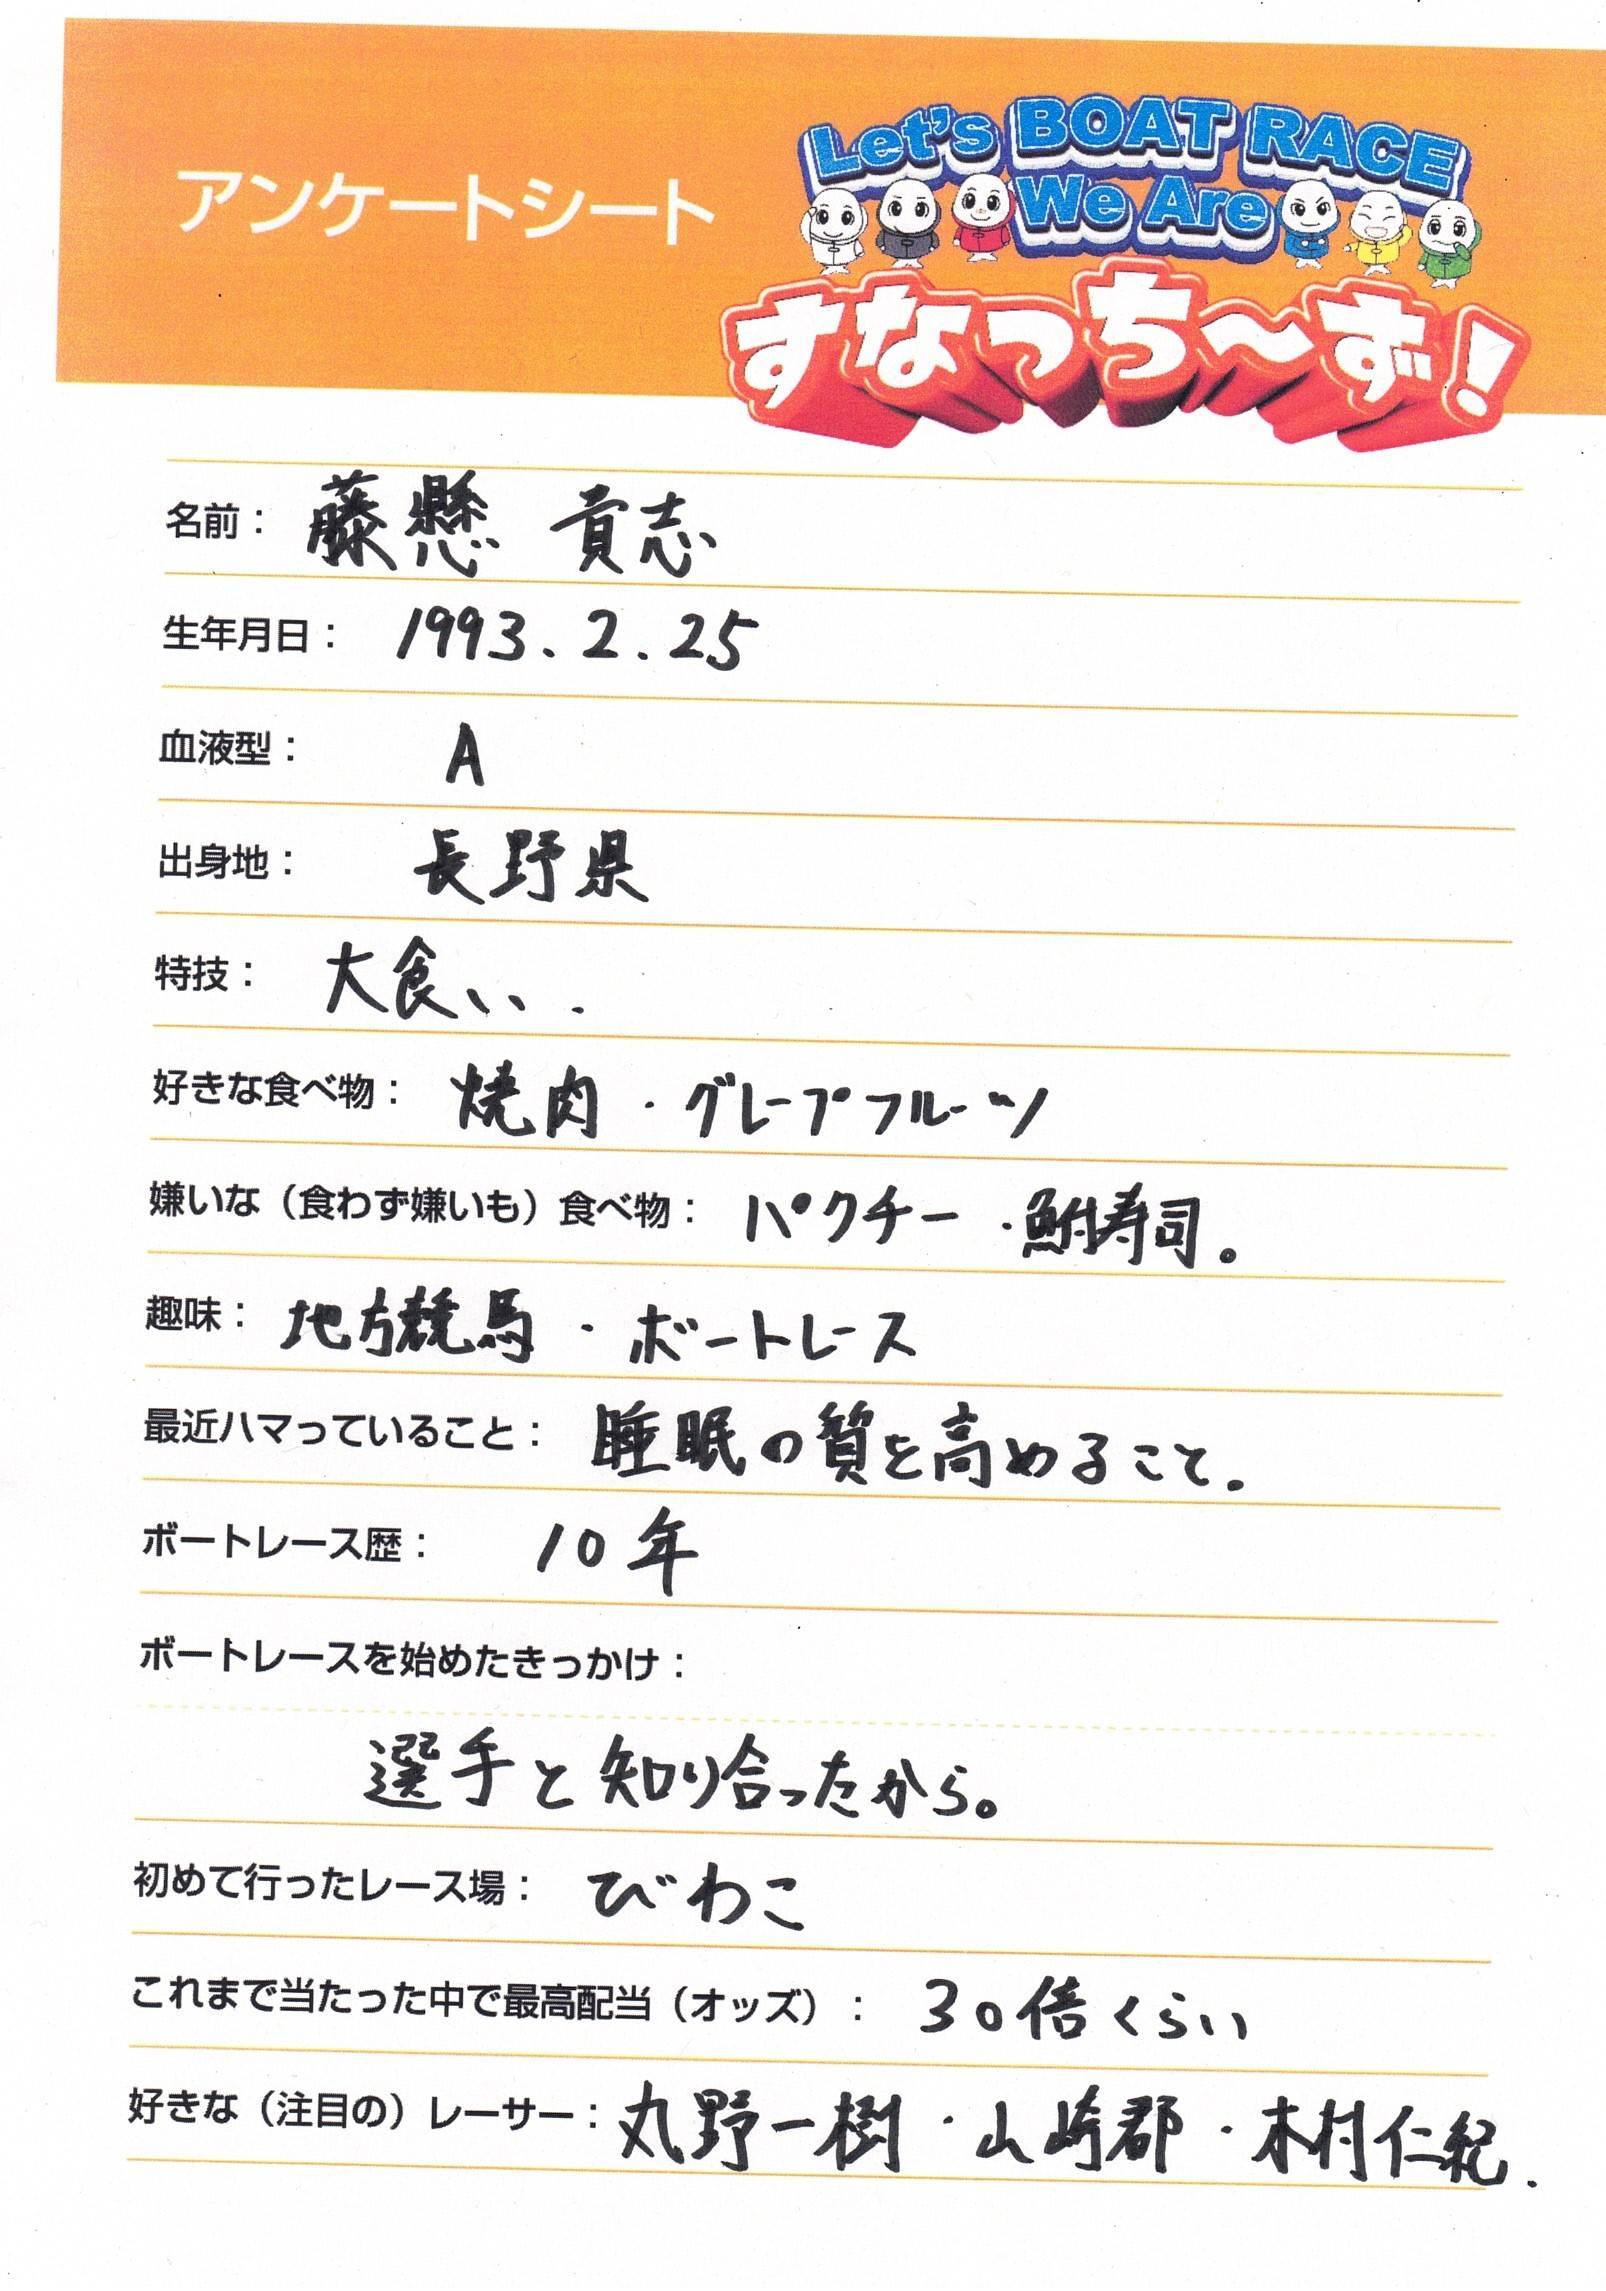 アンケートシート
Let's BOAT RACE
We Are
すなっち～ず!
名前： 藤懸 貢志
生年月日： 1993.2.25
血液型： A
出身地： 長野県
特技： 大食い.
好きな食べ物： 焼肉・グレープフルーツ
嫌いな（食わず嫌いも）食べ物： パクチー・鮒寿司。
趣味： 地方競馬・ボートレース
最近ハマっていること： 睡眠の質を高めること。
ボートレース歴： 10年
ボートレースを始めたきっかけ：
選手と知り合ったから。
初めて行ったレース場： びわこ
これまで当たった中で最高配当（オッズ）： 30倍くらい
好きな（注目の）レーサー： 丸野一樹・山崎郡・木村仁紀.